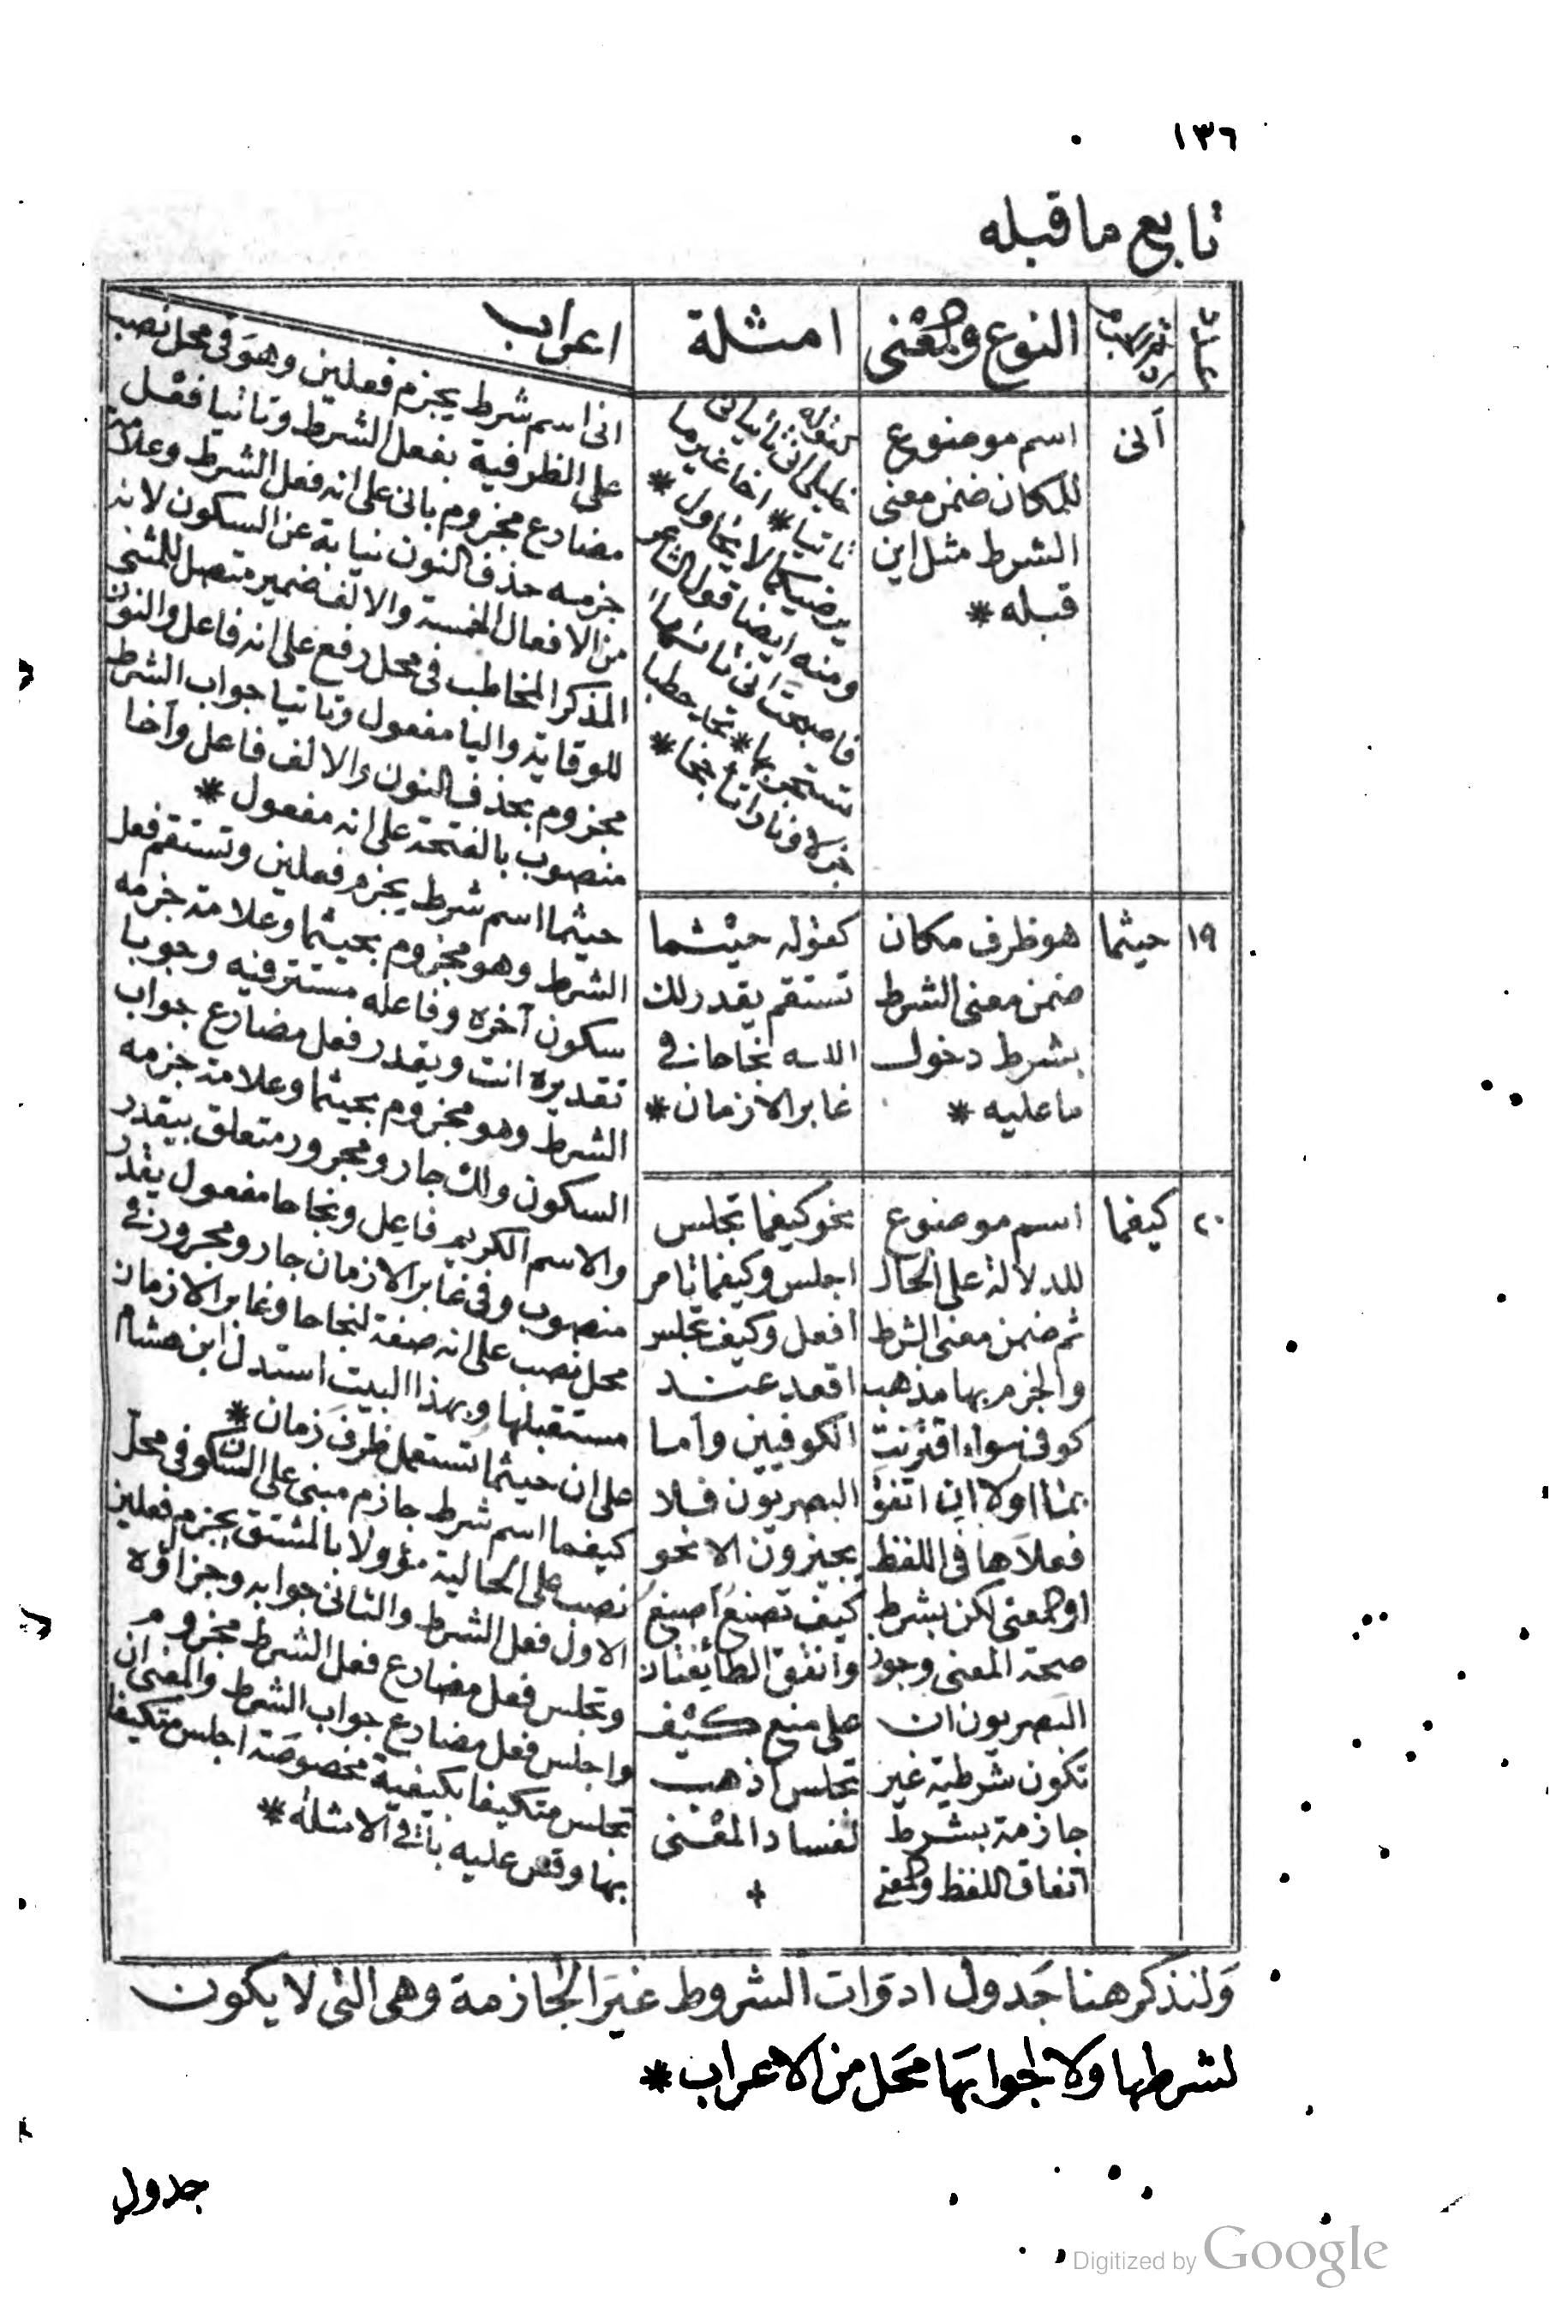 ١٣٦
تابع ما قبله
النوع والمعنى
امثلة
اعراب
أنى
اسم موضوع
للمكان ضمن معنى
الشرط مثل اين
قبله *
كقوله
خليلى انى تاتيانى
تاتيا * اخا غير ما
يرضيكما لا يحاول *
ومنه ايضا قول الشاعر
فاصبحت انى تاتها
تستجر بها * تجد حطبا
جزلا ونارا تاججا *
انى اسم شرط يجزم فعلين وهو فى محل نصب
على الظرفية بفعل الشرط وتاتيا فعل
مضارع مجزوم بانى على انه فعل الشرط وعلامة
جزمه حذف النون نيابة عن السكون لانه
من الافعال الخمسة والالف ضمير متصل للمثنى
المذكر المخاطب فى محل رفع على انه فاعل والنون
للوقاية واليا مفعول وتاتيا جواب الشرط
مجزوم بحذف النون والالف فاعل وآخا
منصوب بالفتحة على انه مفعول *
١٩
حيثما
هو ظرف مكان
ضمن معنى الشرط
بشرط دخول
ما عليه *
كقوله حيثما
تستقم يقدر لك
الله نجاحا فى
غابر الازمان *
حيثما اسم شرط يجزم فعلين وتستقم فعل
الشرط وهو مجزوم بحيثما وعلامة جزمه
سكون آخره وفاعله مستتر فيه وجوبا
تقديره انت ويقدر فعل مضارع جواب
الشرط وهو مجزوم بحيثما وعلامة جزمه
السكون ولك جار ومجرور متعلق بيقدر
والاسم الكريم فاعل ونجاحا مفعول يقدر
منصوب وفى غابر الازمان جار ومجرور فى
محل نصب على انه صفة لنجاحا وغابر الازمان
مستقبلها وبهذا البيت استدل ابن هشام
على ان حيثما تستعمل ظرف زمان *
٢٠
كيفما
اسم موضوع
للدلالة على الحال
ثم ضمن معنى الشرط
والجزم بها مذهب
كوفى سواء اقترنت
بما اولا ان اتفق
فعلاها فى اللفظ
او المعنى لكن بشرط
صحة المعنى وجوز
البصريون ان
تكون شرطية غير
جازمة بشرط
اتفاق اللفظ والمعنى
نحو كيفما تجلس
اجلس وكيفما تامر
افعل وكيف تجلس
اقعد عند
الكوفيين وأما
البصريون فلا
يجيزون الا نحو
كيف تصنع اصنع
واتفق الطائفتان
على منع كيف
تجلس أذهب
لفساد المعنى
+
كيفما اسم شرط جازم مبنى على السكون فى محل
نصب على الحالية مؤولا بالمشتق يجزم فعلين
الاول فعل الشرط والثانى جوابه وجزاؤه
وتجلس فعل مضارع فعل الشرط مجزوم
واجلس فعل مضارع جواب الشرط والمعنى ان
تجلس متكيفا بكيفية مخصوصة اجلس متكيفا
بها وقس عليه باقى الامثلة *
وَلنذكر هنا جَدول ادوَات الشروط غيرَ الجازمة وهى التى لا يكون
لشرطها ولا لجوابهَا محَل من الاعراب *
جدول
Digitized by Google